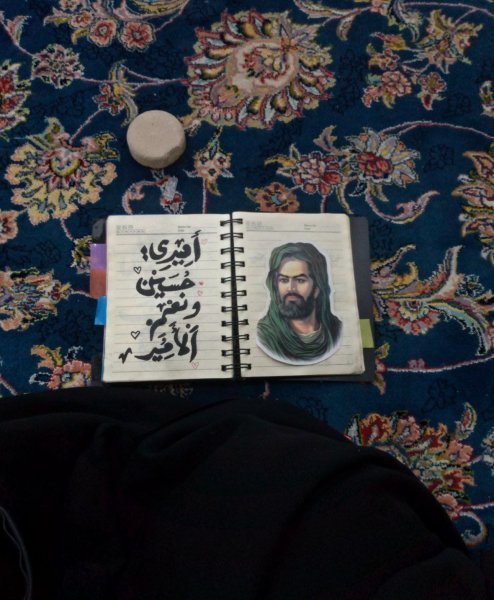 أَمِيْرِي؛
حُسَين
ونَعِم
الأَمِيْر